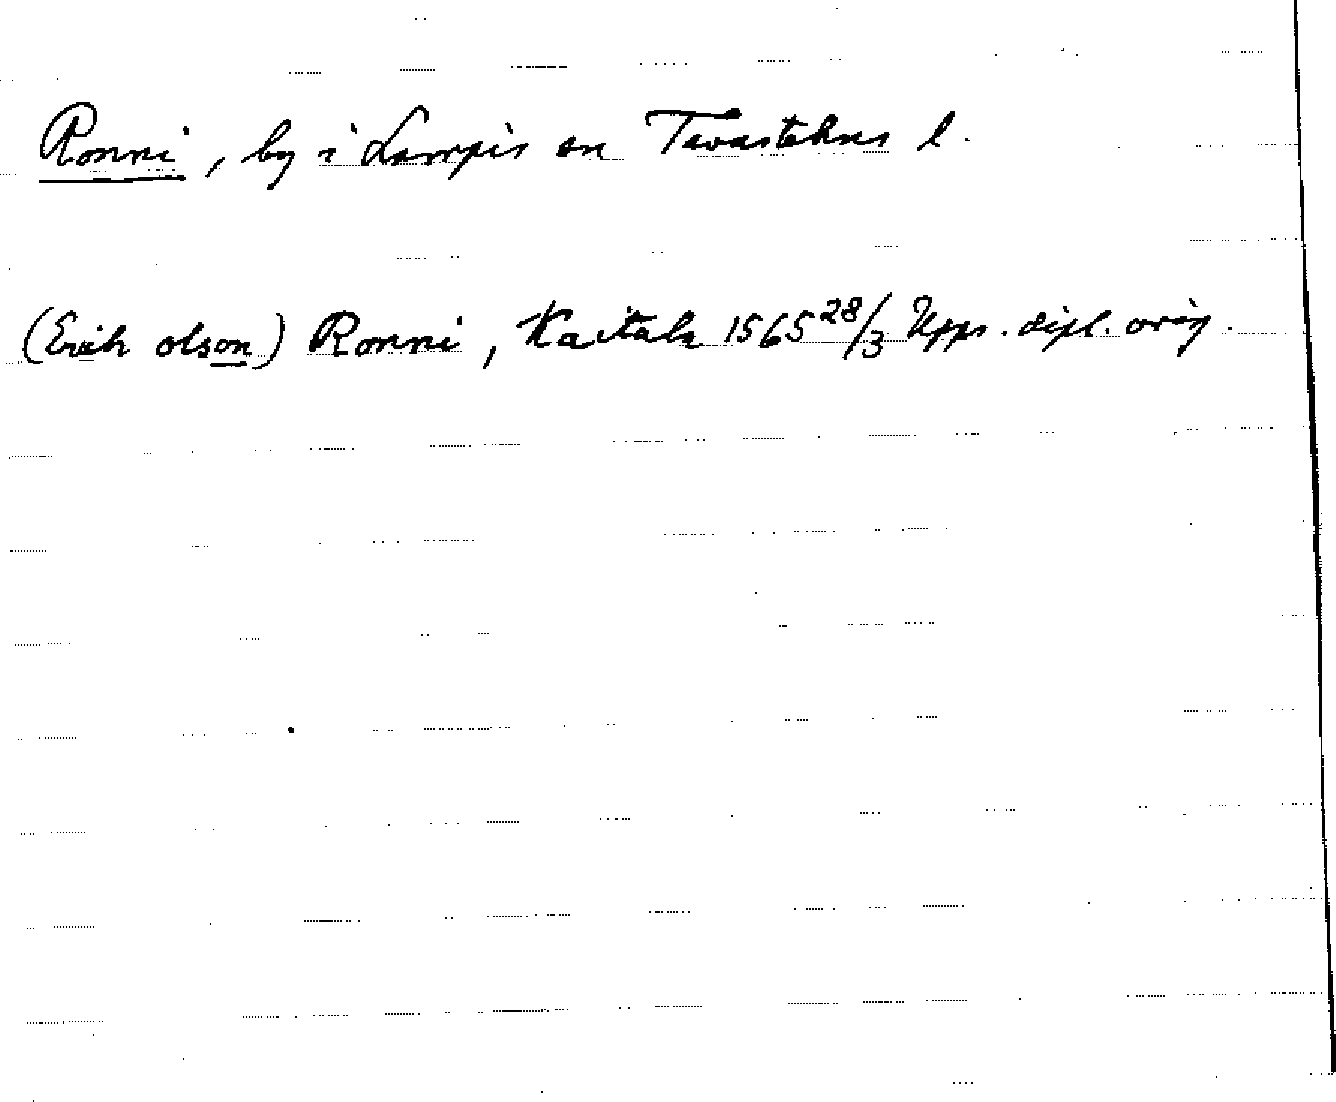 Ronni, by i Lampis sn Tavastehus l.
(Erich olson) Ronni, Kaitala 1565 28/3 Upps. dipl. orig.